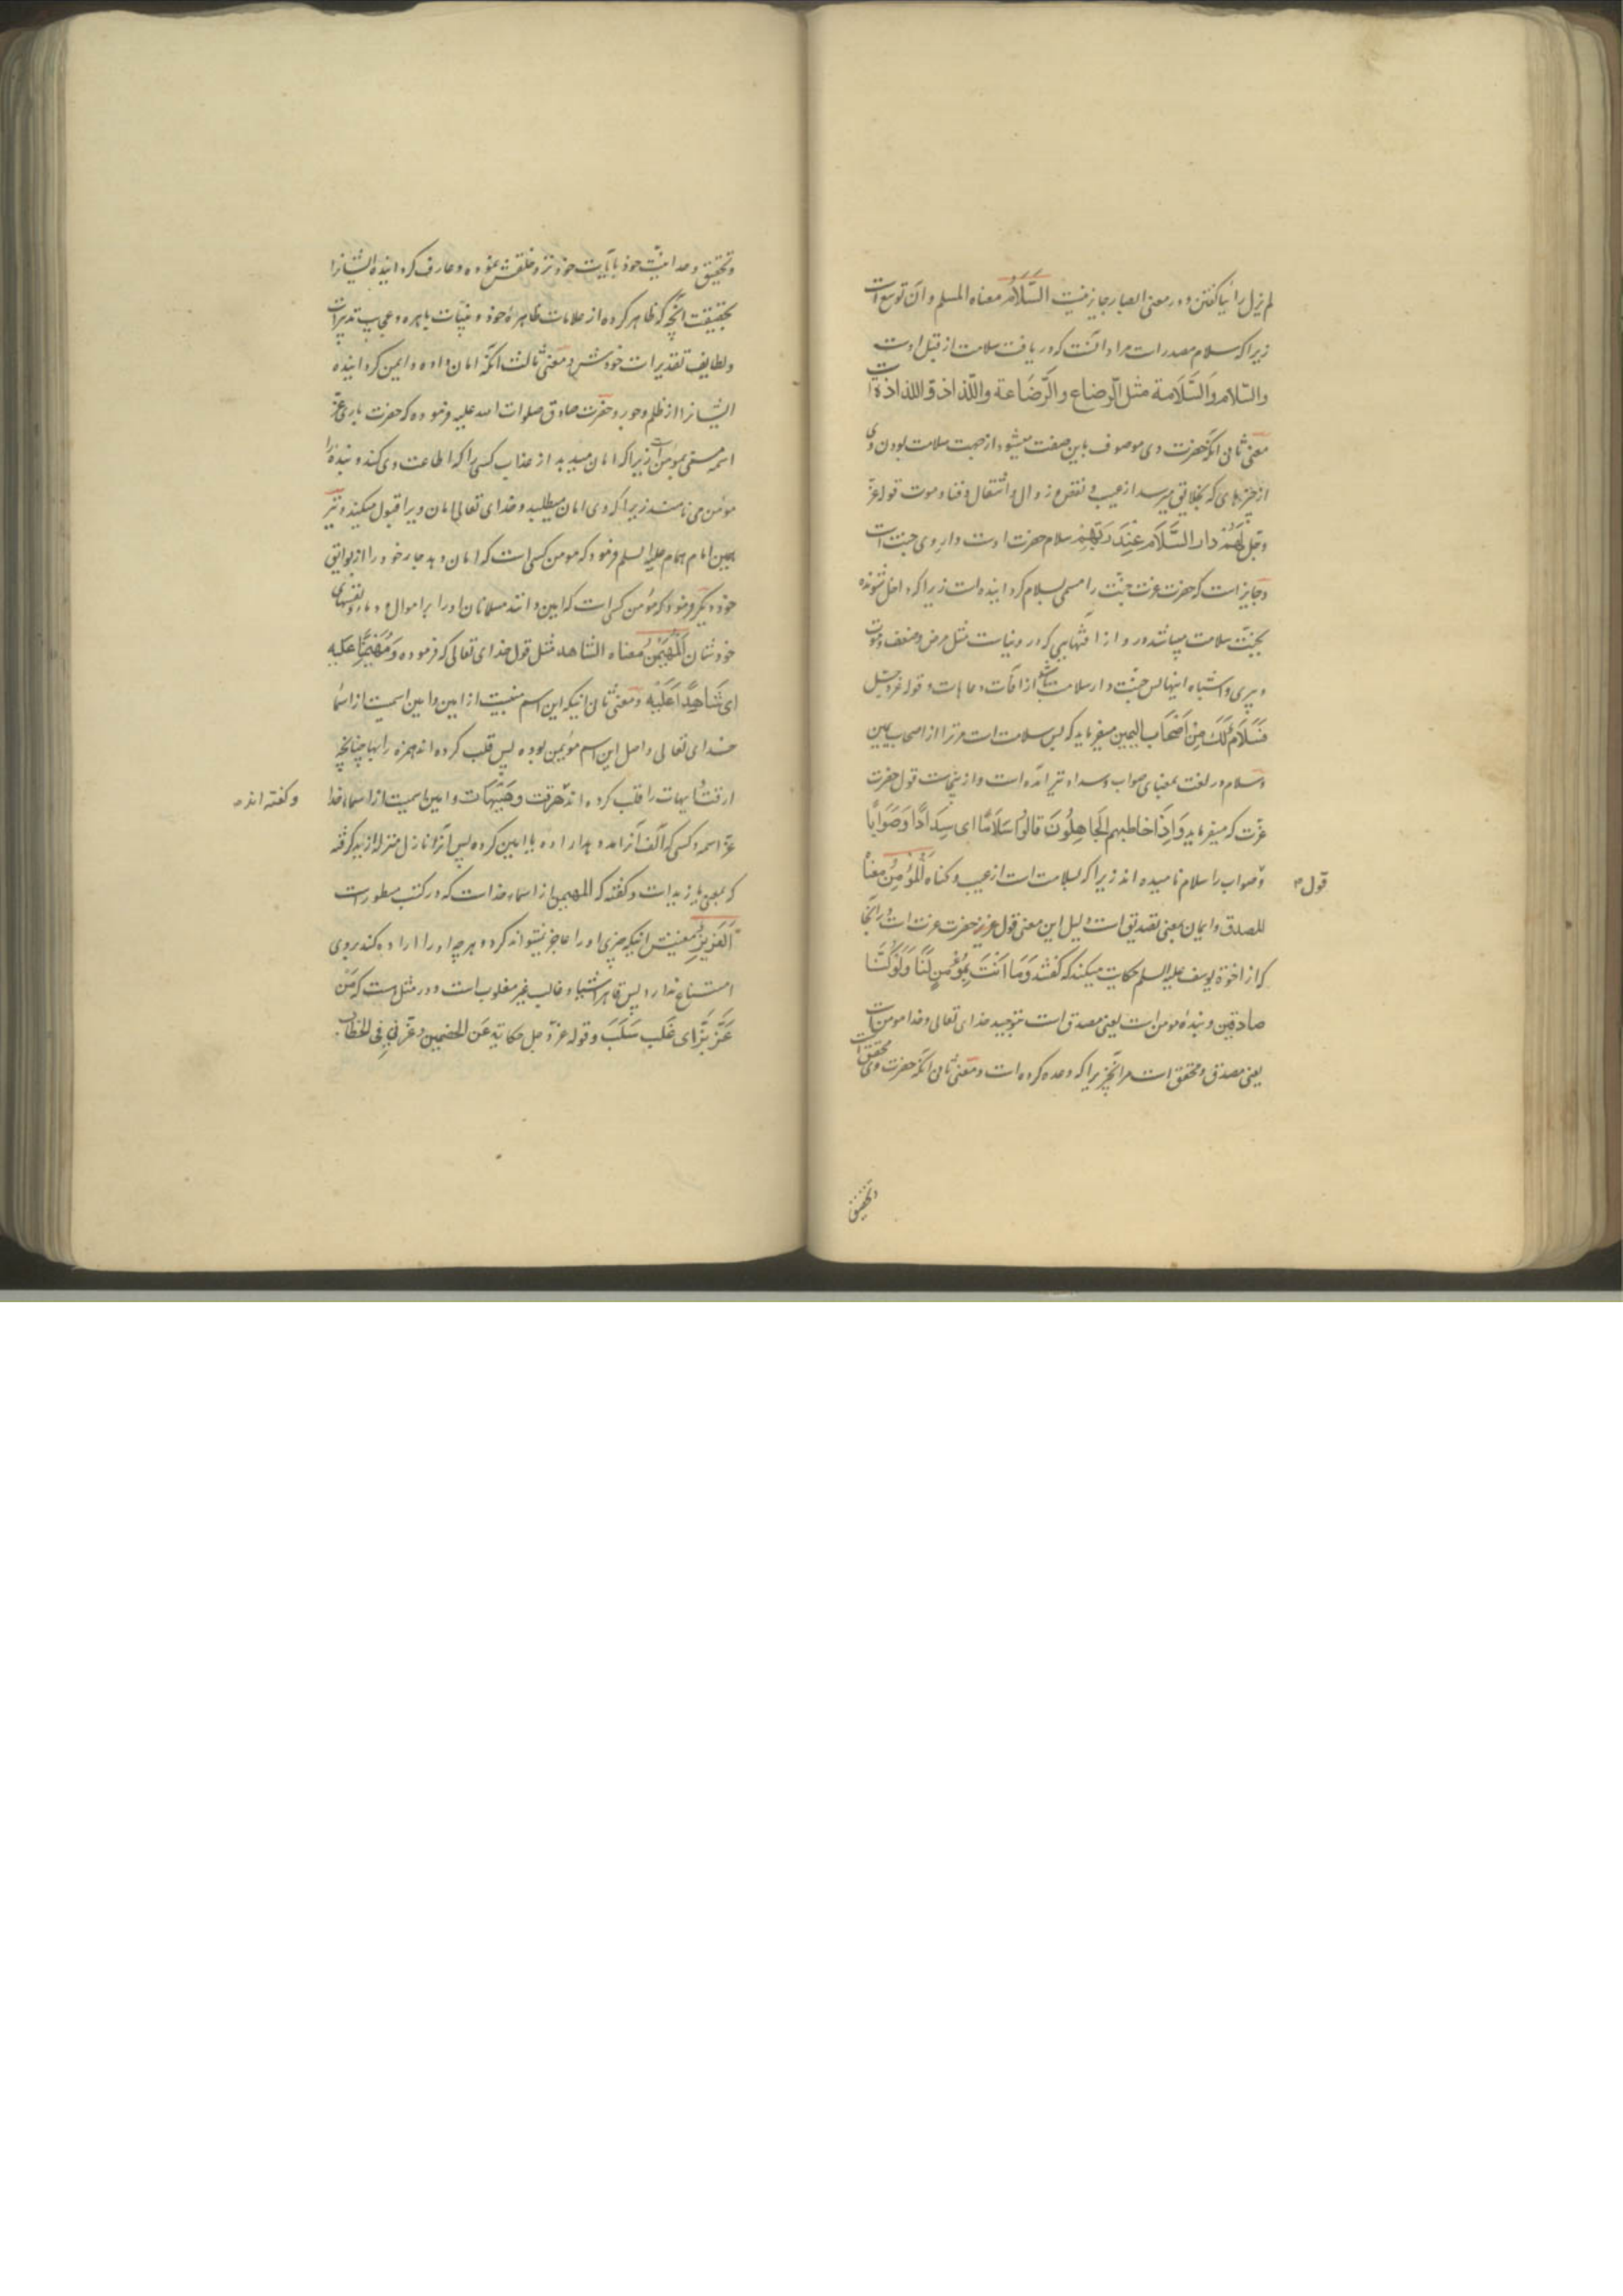 لم یزل رائیا گفتن و در معنی ابصار جایز نیست السَّلَامُ معناه المسلم و آن توسع است
زیرا که سلام مصدر است مراد آنست که دریافت سلامت از قبل اوست
والسّلام والسَّلَامة مثل الرضاع والرَّضَاعة واللّذاذ واللذاذة است
معنی ثانی آنکه حضرت وی موصوف باین صفت میشود از جهت سلامت بودن وی
از چیزهای که بخلایق میرسد از عیب و نقص و زوال و انتقال و فنا و موت قوله عزّ
وجل لَهُمْ دار السَّلَام عِنْدَ رَبِّهِمْ سلام حضرت اوست و دار وی جنت است
و جایز است که حضرت عزت جنّت را مسمی بسلام گردانیده است زیرا که داخل شونده
بجنّت سلامت میباشد در و از آفتهایی که در دنیاست مثل مرض و ضعف و موت
و پیری و اشباه اینها پس جنّت دار سلامت باشد از آفات و عاهات و قوله عزوجل
فَسَلَامٌ لَكَ مِنْ أَصْحَابِ الیمین میفرماید که پس سلامت است مر ترا از اصحاب یمین
و سلام در لغت بمعنای صواب و سداد نیز آمده است و ازینجاست قول حضرت
عزّت که میفرماید وَإِذَا خاطبهم الجَاهِلُونَ قَالُوا سَلَامًا ای سِدَادًا وَصَوَابًا
و صواب را سلام نامیده اند زیرا که بسلامت است از عیب و گناه الْمُؤْمِنُ معناه
قول
المصدق و ایمان بمعنی تصدیق است دلیل این معنی قول عزیز حضرت عزت است در آنجا
که از اخوة یوسف علیه السلم حکایت میکند که گفتند وَمَا أَنْتَ بِمُؤْمِنٍ لَنَا وَلَوْ كُنَّا
صادقین و بنده مومن است یعنی مصدق است بتوحید خدای تعالی و خدا مومن است
یعنی مصدق و محقق است مر آنچیز را که وعده کرده است و معنی ثانی آنکه حضرت وی محقق است
و تحقیق
و تحقیق وحدانیّت خود بآیات خود نزد خلقش نموده و عارف گردانیده ایشانرا
بحقیقت آنچه که ظاهر کرده از علامات ظاهرهٔ خود و بیّنات باهره و عجایب تدبیرات
و لطایف تقدیرات خودش و معنی ثالث آنکه امان داده و ایمن گردانیده
ایشانرا از ظلم و جور و حضرت صادق صلوات الله علیه فرموده که حضرت باری عزّ
اسمه مسمّی بمؤمن است زیرا که امان میدهد از عذاب کسی را که اطاعت وی کند و بنده را
مؤمن می نامند زیرا که وی امان میطلبد و خدای تعالی امان ویرا قبول میکند و نیز
همین امام همام علیه السلم فرمود که مومن کسی است که امان دهد جار خود را از بوایق
خود و دیگر فرمود که مؤمن کسی است که امین دانند مسلمانان او را بر اموال و دماء و نفسهای
خودشان المُهَیْمِنُ معناه الشاهد مثل قول خدای تعالی که فرموده وَمُهَیْمِنًا عَلَیه
ای شَاهِدًا عَلَیْهِ و معنی ثانی اینکه این اسم مبنیست از امین و امین اسمیست از اسماء
خدای تعالی و اصل این اسم مؤیمن بوده پس قلب کرده اند همزه را بها چنانچه
ارقت و ایهات را قلب کرده اند هرقت و هَیْهَات و امین اسمیست از اسماء خدا
و گفته اند
عزّ اسمه و کسی که الف آنرا مد بدهد اراده یا امین کرده پس آنرا نازل منزلهٔ ازید گرفته
که بمعنی یا زید است و گفته که المهیمن از اسماء خداست که در کتب مسطور است
العَزِیزُ معنیش اینکه چیزی او را عاجز نمیتواند کرد و هر چه او را اراده کند بروی
امتناع ندارد پس قاهر اشیا و غالب غیر مغلوب است و در مثل هست که مَنْ
عَزَّ بَزَّ ای غَلَب سَلَبَ و قوله عزّ وجل حکایة عَن الخصمین وعَزَّنِی فِی الخطاب